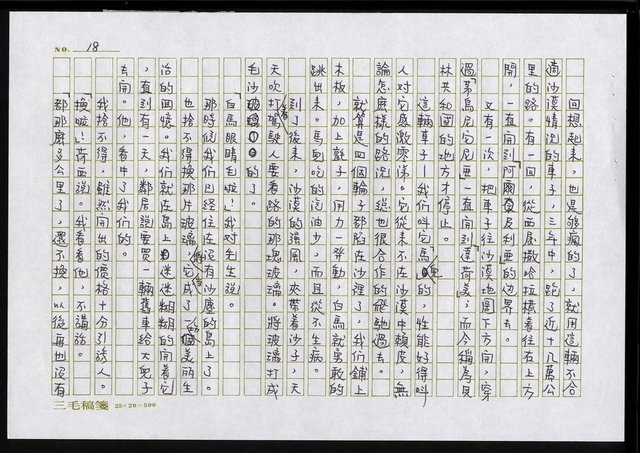 NO. 18
回想起來，也是够瘋的了，就用這輛不合
適沙漠情況的車子，三年中，跑了近十幾萬公
里的路。有一回，從西屬撒哈拉橫着往右上方
開，一直開到阿爾及利亞的邊界去。
又有一次，把車子往沙漠地圖下方開，穿
過「茅烏尼它尼亞」一直開到「達荷美」，而今稱為貝
林共和國的地方才停止。
這輛車子——我們叫它馬兒的，性能好得叫
人對它感激零涕。它從來不在沙漠中賴皮，無
論怎麼樣的路況，總也很合作的飛馳過去。
就算是四個輪子都陷在沙裡了，我們鋪上
木板，加上毯子，用力一發動，白馬就勇敢的
跳出來。馬兒吃的汽油少，而且從不生病。
到了後來，沙漠的強風，夾帶着沙子，天
天吹打着駕駛人要看路的那塊玻璃。將玻璃打成
毛沙玻璃的了。
「白馬眼睛毛啦！」我對先生說。
那時候我們已經住在沒有沙塵的島上了。
也捨不得換那片玻璃，它成了一個美麗生
活的回憶。我們就在島上迷迷糊糊的開着它
，直到有一天，鄰居說要買一輛舊車給大兒子
去開。他，看中了我們的。
我捨不得，雖然開出的價格十分引誘人。
「換啦！」荷西說。我看看他，不講話。
「都那麼多公里了，還不換，以後再也沒有
三毛稿箋 25×20=500